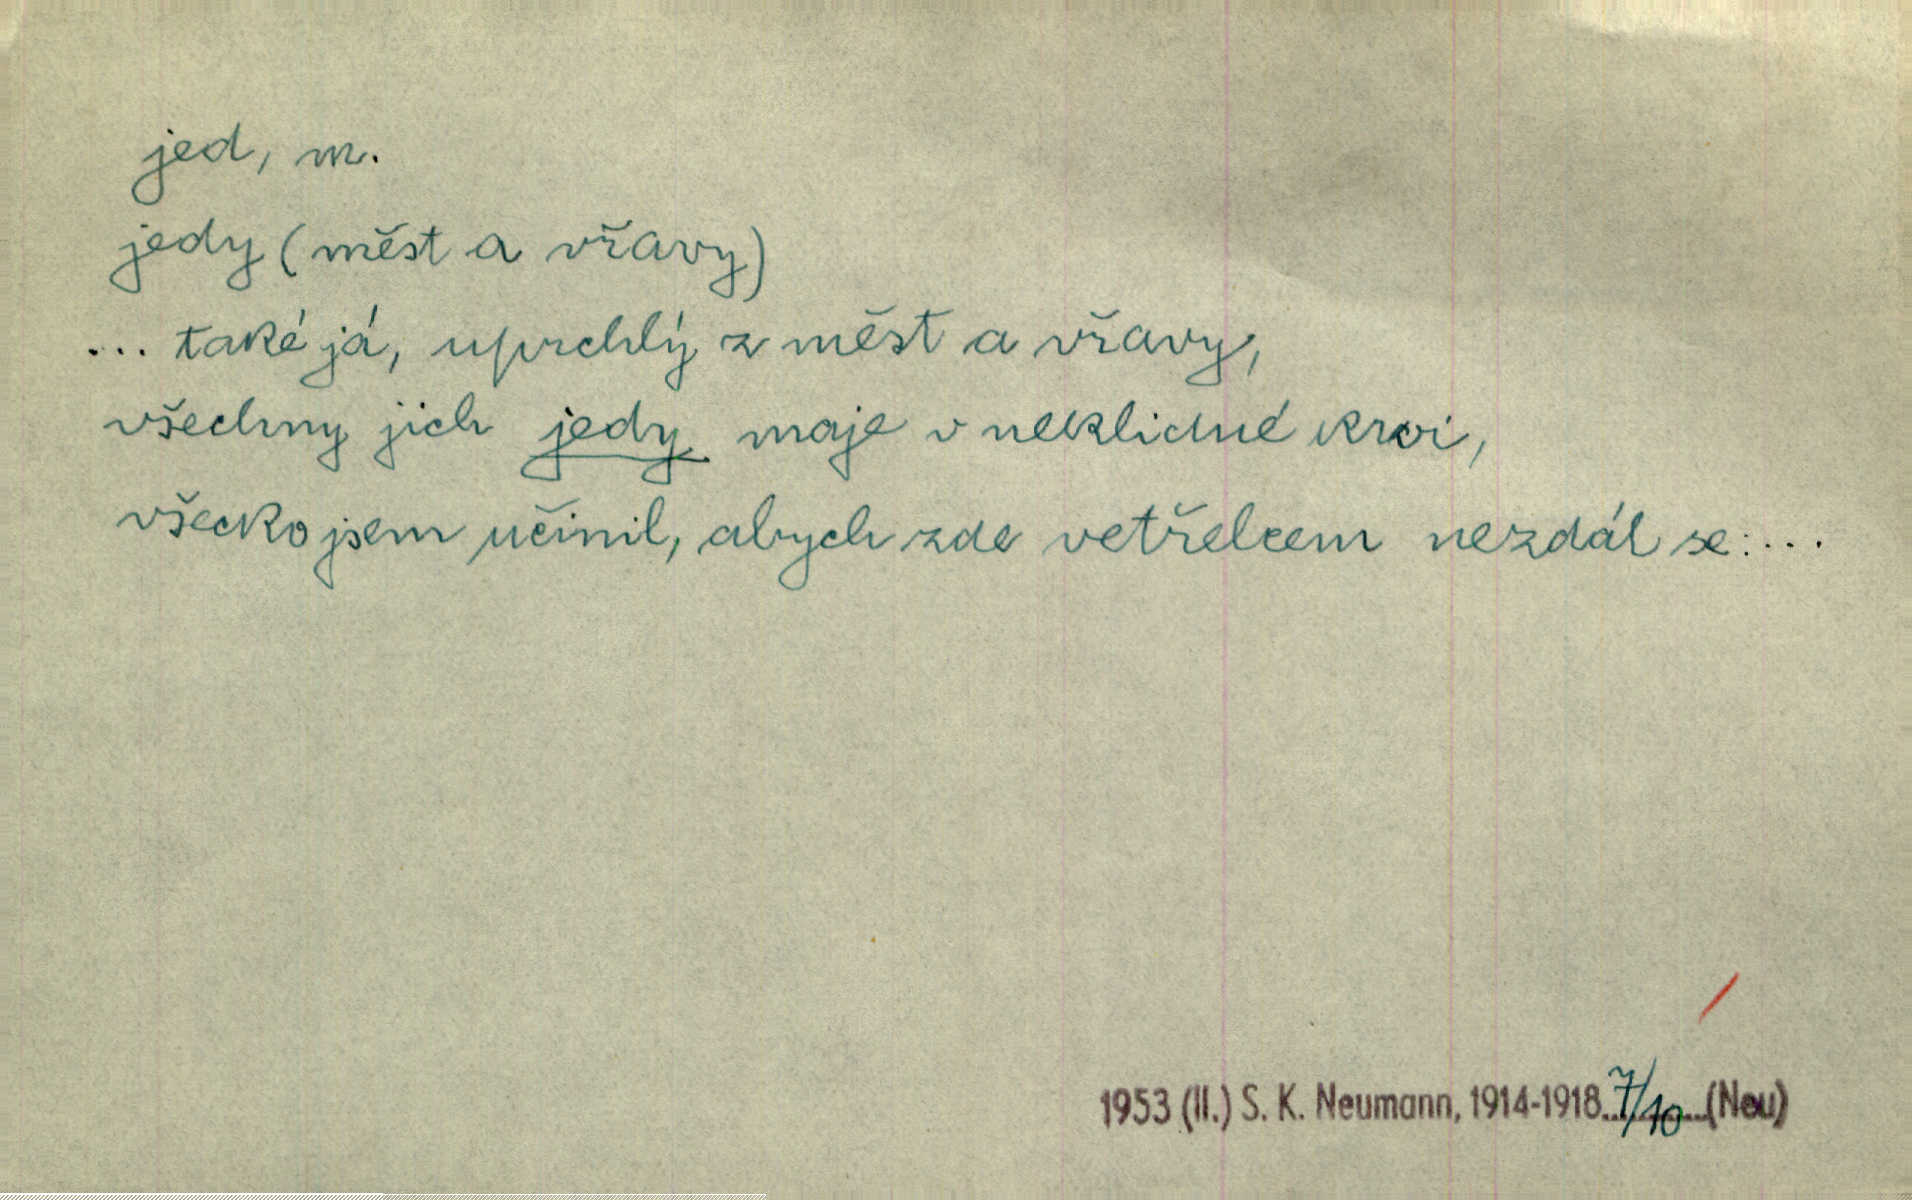 jed, m.
jedy (měst a vřavy)
... také já, uprchlý z měst a vřavy,
všechny jich jedy maje v neklidné krvi,
všecko jsem učinil, abych zde vetřelcem nezdál se:...
1953 (II.) S. K. Neumann, 1914-1918 7/10 (Neu)